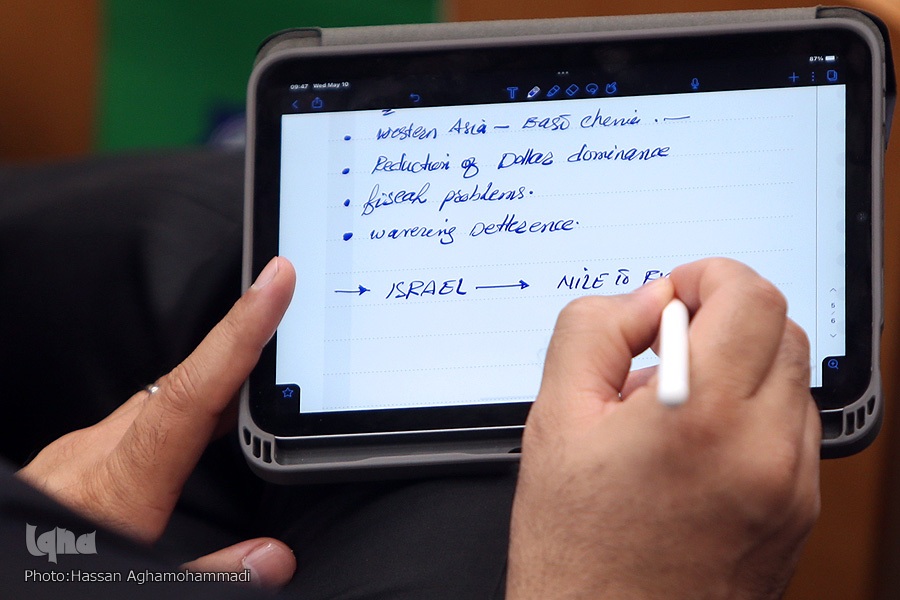 09:47 Wed May 10
87%
T
• Western Asia — East
• Reduction of Dollar dominance
• fiscal problems.
• wavering Detterence.
→ ISRAEL → NILE TO
5/6
Iqna
Photo:Hassan Aghamohammadi